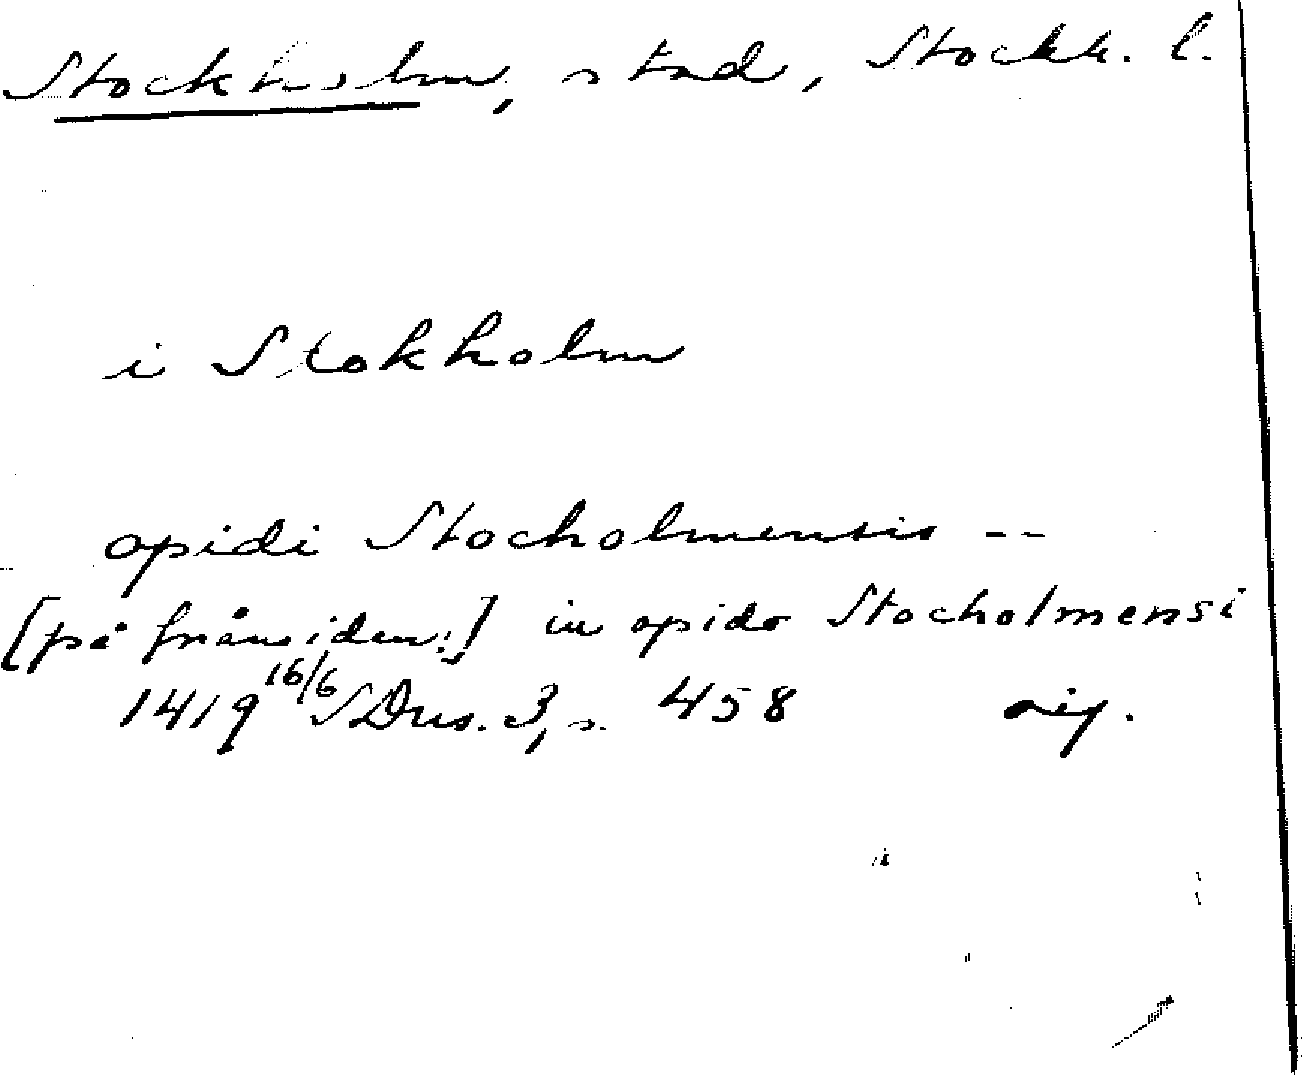 Stockholm, stad, Stockh. l.
i Stokholm
opidi Stocholmensis --
[på frånsidan:] in opido Stocholmensi
1419 16/6 SDns. 3, s. 458 orig.